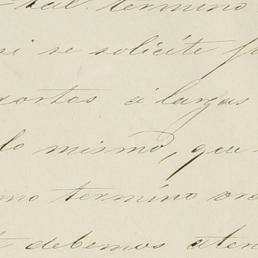 tal termino
si se solicite
cortos ó largos
lo mismo, que
mo termino
debemos aten